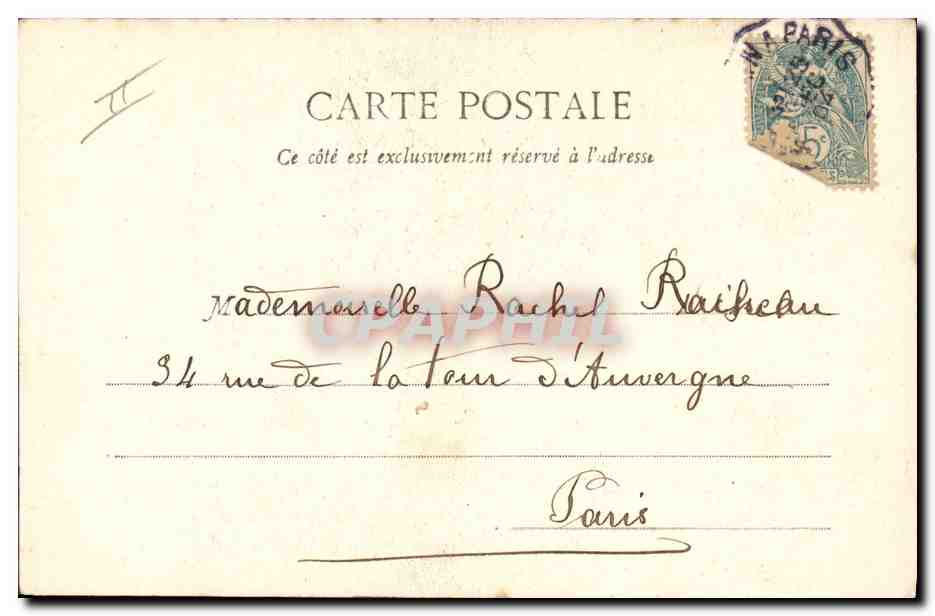 CARTE POSTALE
Ce côté est exclusivement réservé à l'adresse
A PARIS
5c
Mademoiselle Rachel
34 rue de la Tour d'Auvergne
Paris
CPAPHIL